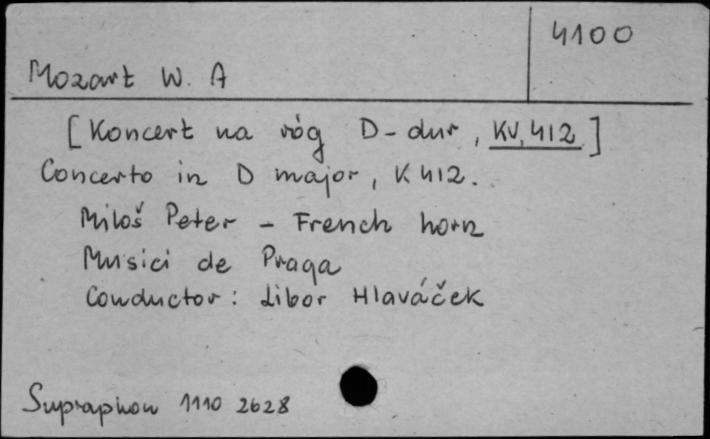 4100
Mozart W. A
[Koncert na róg D-dur, KV, 412]
Concerto in D major, K 412.
Miloš Peter - French horn
Musici de Praga
Conductor: Libor Hlaváček
Supraphon 1110 2628